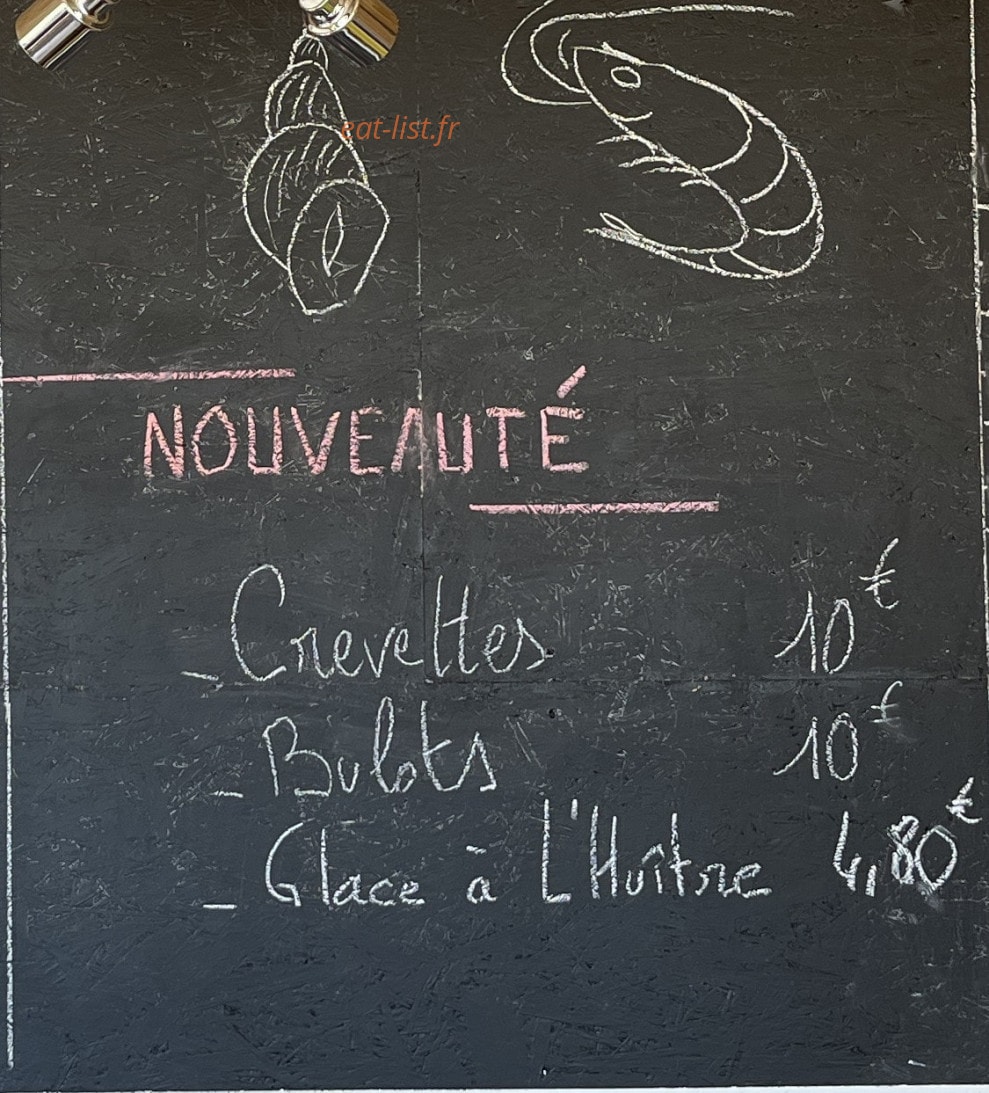 eat-list.fr
NOUVEAUTÉ
_ Crevettes 10€
_ Bulots 10€
_ Glace à L'Huître 4,80€